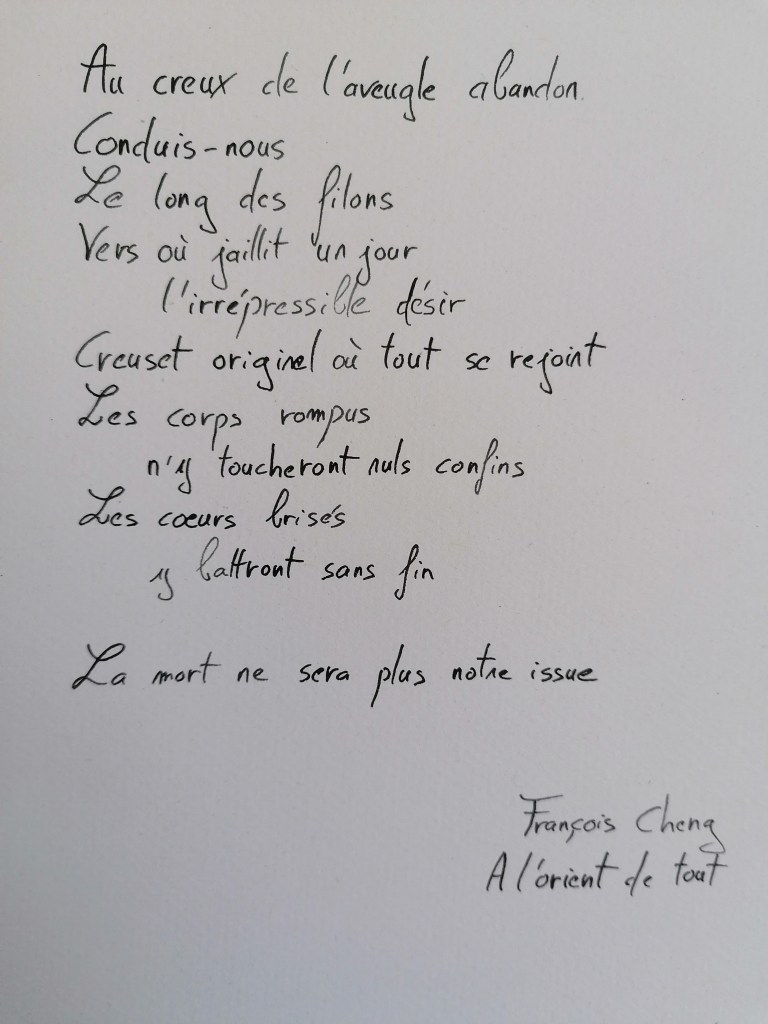 Au creux de l'aveugle abandon
Conduis-nous
Le long des filons
Vers où jaillit un jour
l'irrépressible désir
Creuset originel où tout se rejoint
Les corps rompus
n'y toucheront nuls confins
Les cœurs brisés
y battront sans fin
La mort ne sera plus notre issue
François Cheng
A l'orient de tout